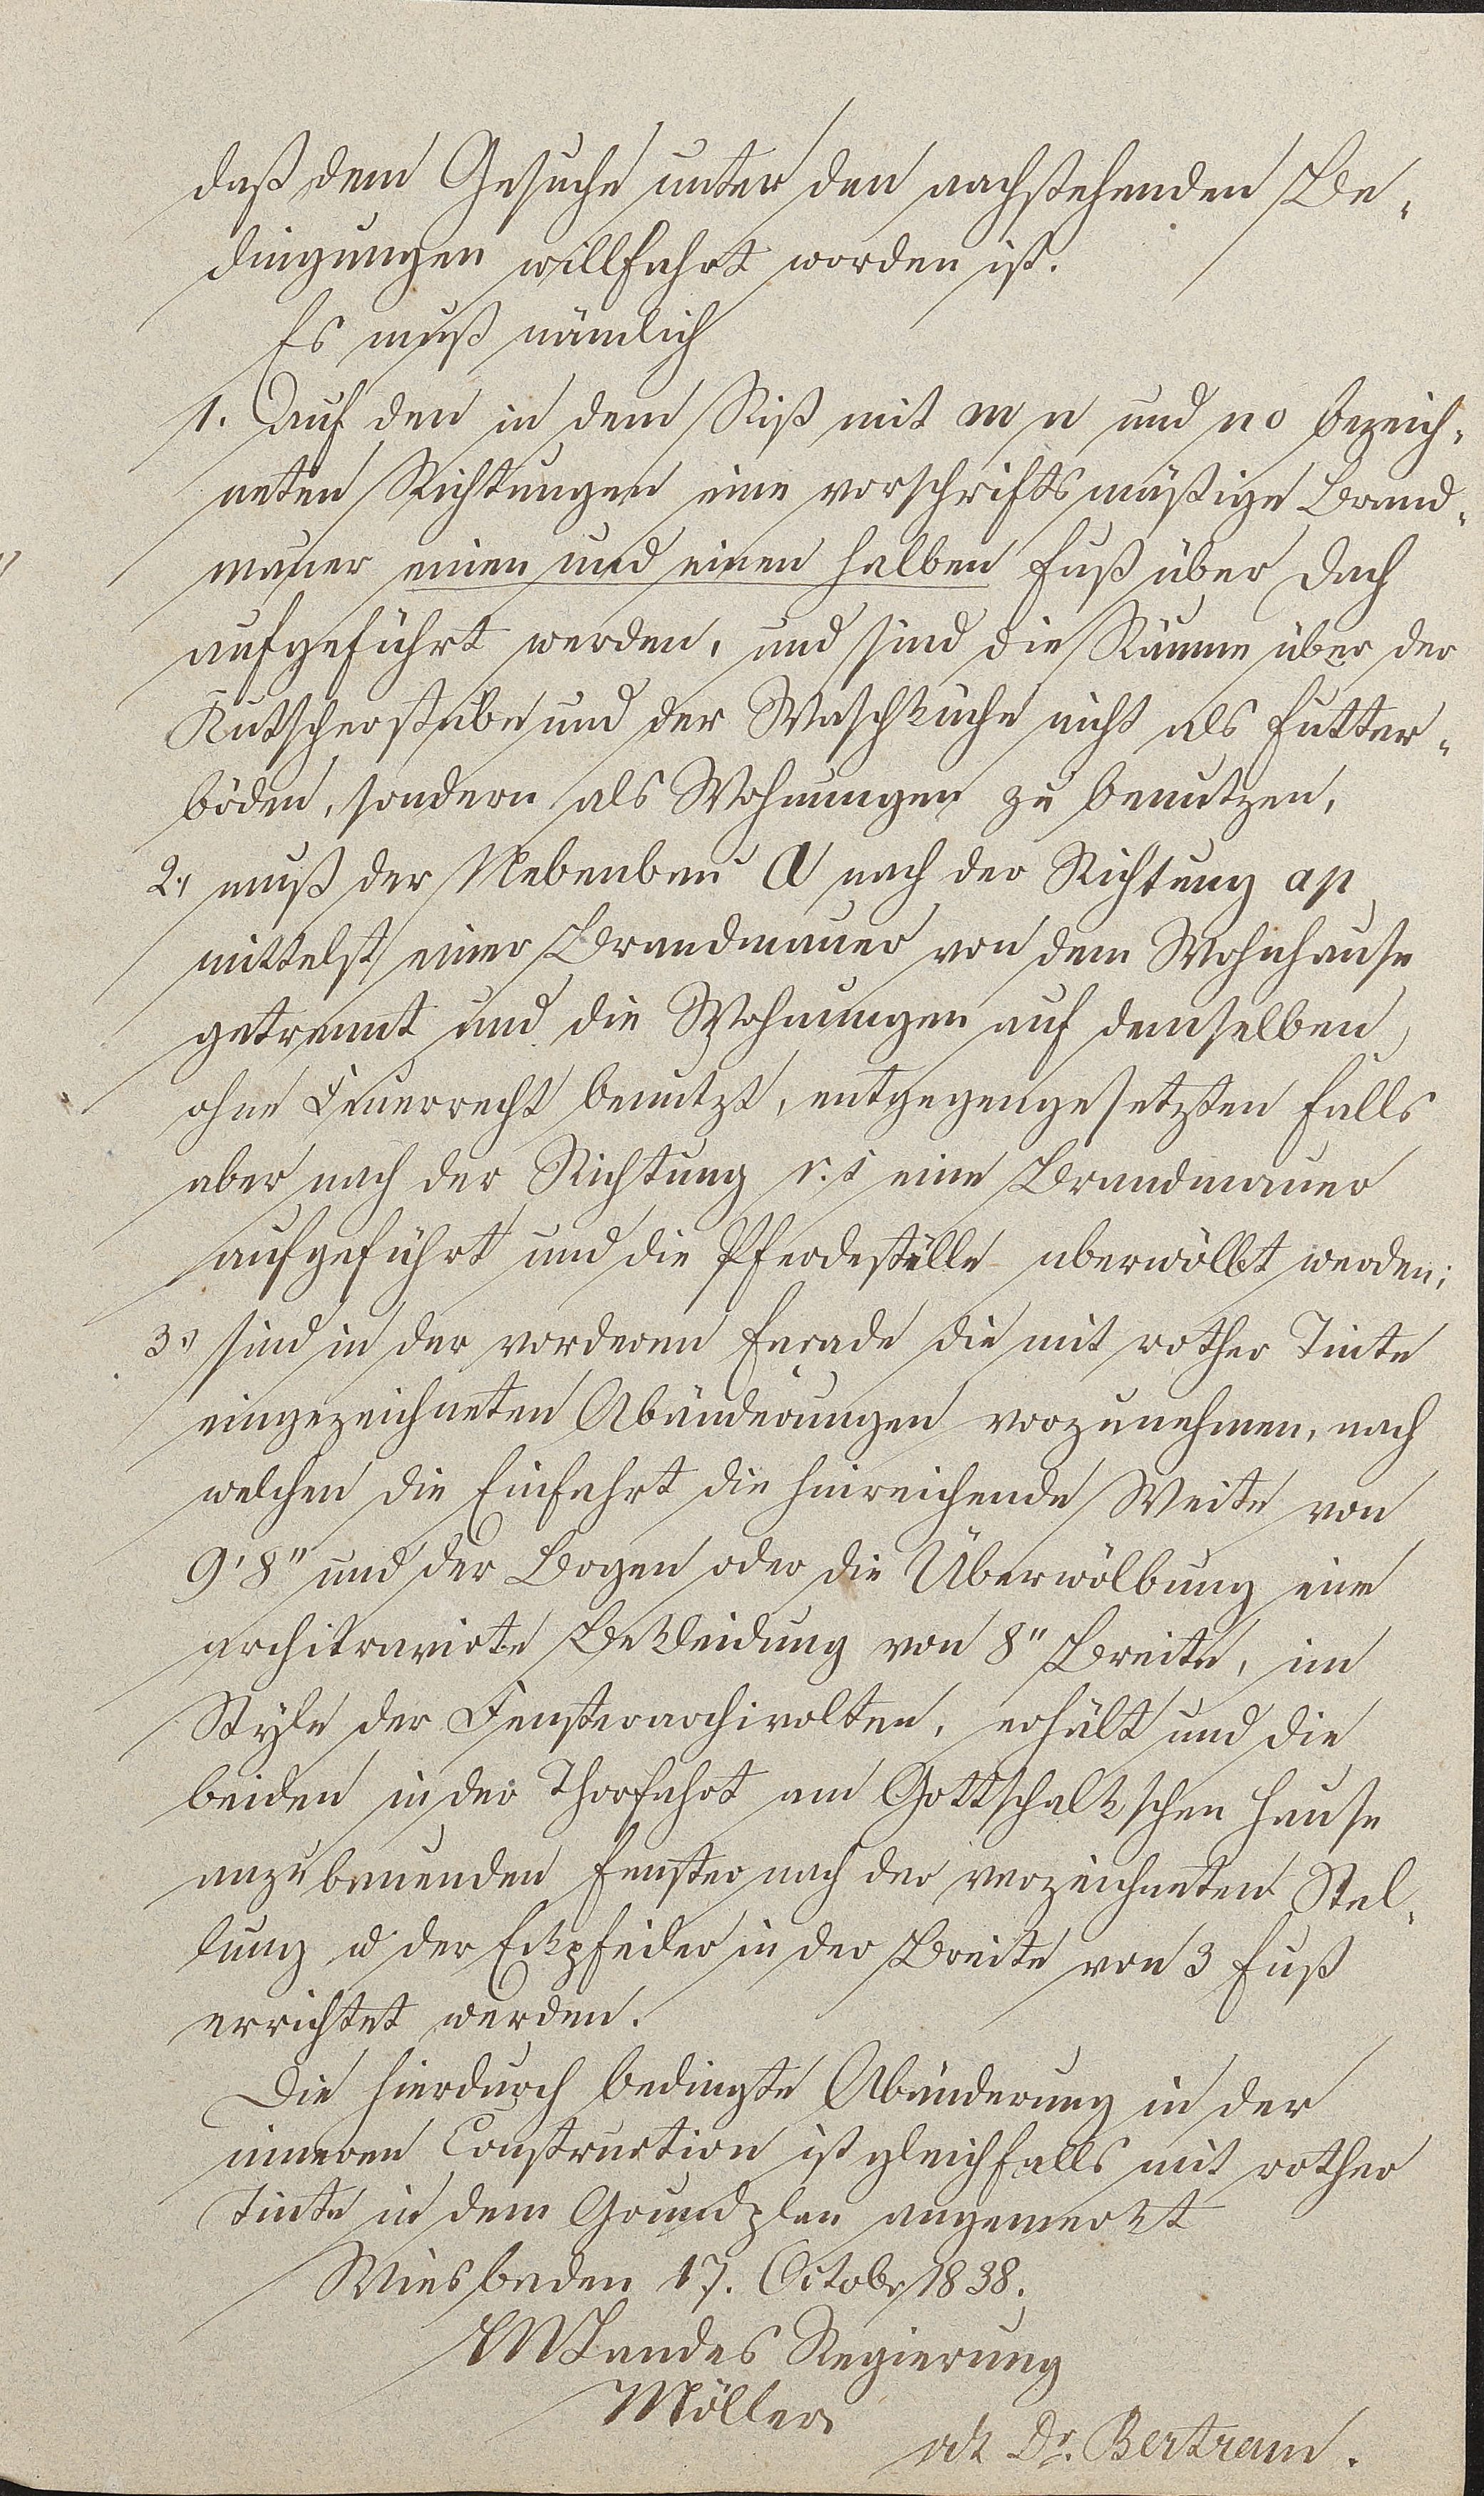 daß dem Gesuche unter den nachstehenden Be-
dingungen willfahrt worden ist.
Es muß nämlich
1. auf den in dem Riß mit m n und no bezeich-
neten Richtungen eine vorschriftsmäßige Brand-
mauer einen und einen halben Fuß über Dach
aufgeführt werden, und sind die Räume über der
Kutscherstube und der Waschküche nicht als Futter-
böden, sondern als Wohnungen zu benutzen,
2., muß der Nebenbau A nach der Richtung ap
mittelst einer Brandmauer von dem Wohnhause
getrennt und die Wohnungen auf demselben
ohne Feuerrecht benutzt, entgegengesetzten Falls
aber nach der Richtung r.s eine Brandmauer
aufgeführt und die Pferdeställe uberwölbt werden;
3., sind in der vorderen Façade die mit rother Tinte
eingezeichneten Abänderungen vorzunehmen, nach
welchen die Einfahrt die hinreichende Weite von
9' 8" und der Bogen oder die Überwölbung eine
architravirte Bekleidung von 8" Breite, im
Style der Fensterarchivolten, erhält und die
beiden in der Thorfahrt am Gottschalk'schen Hause
anzubauenden Fenster nach der verzeichneten Stel-
lung u der Eckpfeiler in der Breite von 3 Fuß
errichtet werden.
Die hierdurch bedingte Abänderung in der
inneren Construction ist gleichfalls mit rother
Tinte in dem Grundplan angemerkt
Wiesbaden 17. Octobr 1838.
Landes Regierung
Möller
vdt Dr. Bertram.